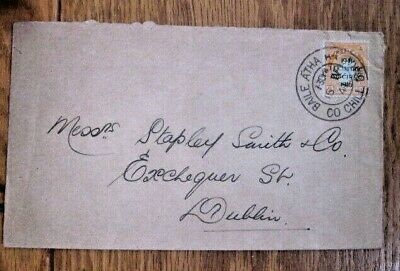 BAILE ÁTHA
CO CHILL
Messrs Stapley Smith & Co
Exchequer St.
Dublin.